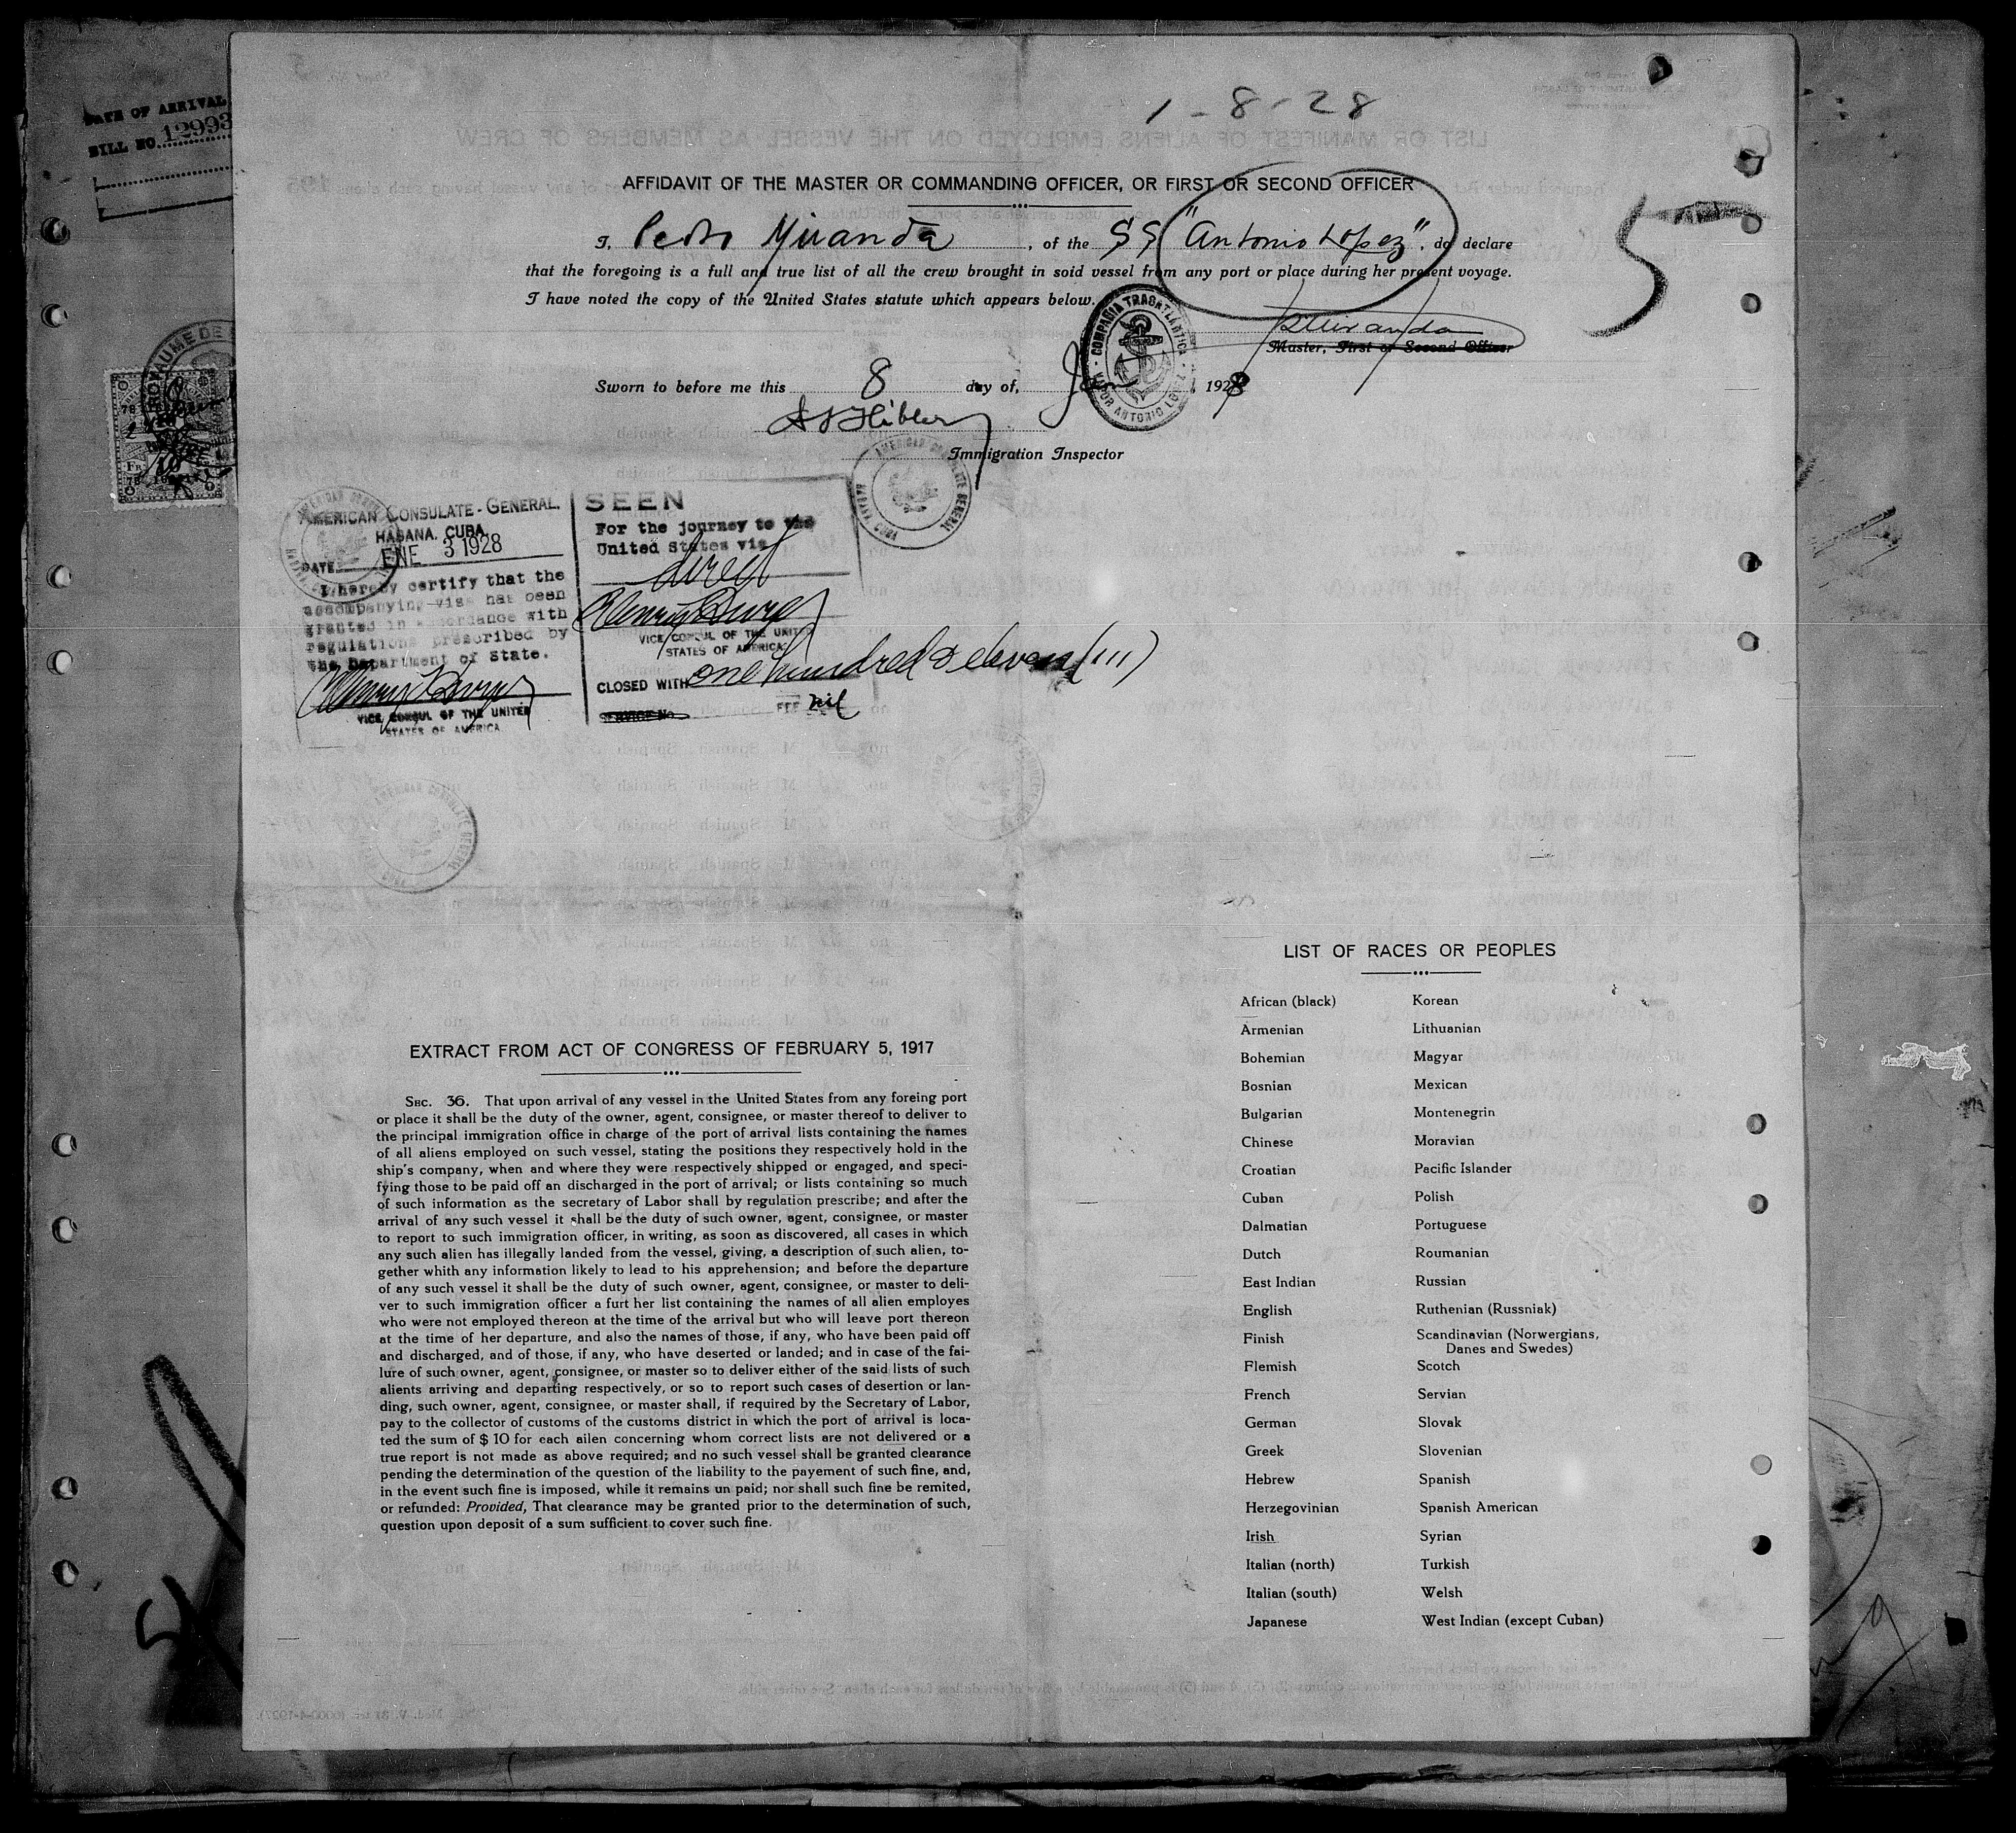 DATE OF ARRIVAL
BILL NO. 12993
1-8-28
5
AFFIDAVIT OF THE MASTER OR COMMANDING OFFICER, OR FIRST OR SECOND OFFICER
I, Pedro Miranda, of the SS "Antonio Lopez", do declare
that the foregoing is a full and true list of all the crew brought in soid vessel from any port or place during her present voyage.
I have noted the copy of the United States statute which appears below.
COMPAÑIA TRASATLANTICA
VAPOR ANTONIO LOPEZ
PMiranda
Master, First or Second Officer
Sworn to before me this 8 day of, Jan, 1928
Immigration Inspector
AMERICAN CONSULATE GENERAL
HABANA, CUBA
AMERICAN CONSULATE-GENERAL,
HABANA, CUBA
DATE ENE 3 1928
I hereby certify that the
accompanying visa has been
granted in accordance with
regulations prescribed by
the Department of State.
VICE CONSUL OF THE UNITED
STATES OF AMERICA
SEEN
For the journey to the
United States via
direct
VICE CONSUL OF THE UNITED
STATES OF AMERICA
CLOSED WITH one hundred & eleven (111)
SERVICE No. FEE nil
EXTRACT FROM ACT OF CONGRESS OF FEBRUARY 5, 1917
SEC. 36. That upon arrival of any vessel in the United States from any foreing port
or place it shall be the duty of the owner, agent, consignee, or master thereof to deliver to
the principal immigration office in charge of the port of arrival lists containing the names
of all aliens employed on such vessel, stating the positions they respectively hold in the
ship's company, when and where they were respectively shipped or engaged, and speci-
fying those to be paid off an discharged in the port of arrival; or lists containing so much
of such information as the secretary of Labor shall by regulation prescribe; and after the
arrival of any such vessel it shall be the duty of such owner, agent, consignee, or master
to report to such immigration officer, in writing, as soon as discovered, all cases in which
any such alien has illegally landed from the vessel, giving, a description of such alien, to-
gether whith any information likely to lead to his apprehension; and before the departure
of any such vessel it shall be the duty of such owner, agent, consignee, or master to deli-
ver to such immigration officer a furt her list containing the names of all alien employes
who were not employed thereon at the time of the arrival but who will leave port thereon
at the time of her departure, and also the names of those, if any, who have been paid off
and discharged, and of those, if any, who have deserted or landed; and in case of the fai-
lure of such owner, agent, consignee, or master so to deliver either of the said lists of such
alients arriving and departing respectively, or so to report such cases of desertion or lan-
ding, such owner, agent, consignee, or master shall, if required by the Secretary of Labor,
pay to the collector of customs of the customs district in which the port of arrival is loca-
ted the sum of $ 10 for each ailen concerning whom correct lists are not delivered or a
true report is not made as above required; and no such vessel shall be granted clearance
pending the determination of the question of the liability to the payement of such fine, and,
in the event such fine is imposed, while it remains un paid; nor shall such fine be remited,
or refunded: Provided, That clearance may be granted prior to the determination of such,
question upon deposit of a sum sufficient to cover such fine.
LIST OF RACES OR PEOPLES
African (black)
Armenian
Bohemian
Bosnian
Bulgarian
Chinese
Croatian
Cuban
Dalmatian
Dutch
East Indian
English
Finish
Flemish
French
German
Greek
Hebrew
Herzegovinian
Irish
Italian (north)
Italian (south)
Japanese
Korean
Lithuanian
Magyar
Mexican
Montenegrin
Moravian
Pacific Islander
Polish
Portuguese
Roumanian
Russian
Ruthenian (Russniak)
Scandinavian (Norwergians,
Danes and Swedes)
Scotch
Servian
Slovak
Slovenian
Spanish
Spanish American
Syrian
Turkish
Welsh
West Indian (except Cuban)